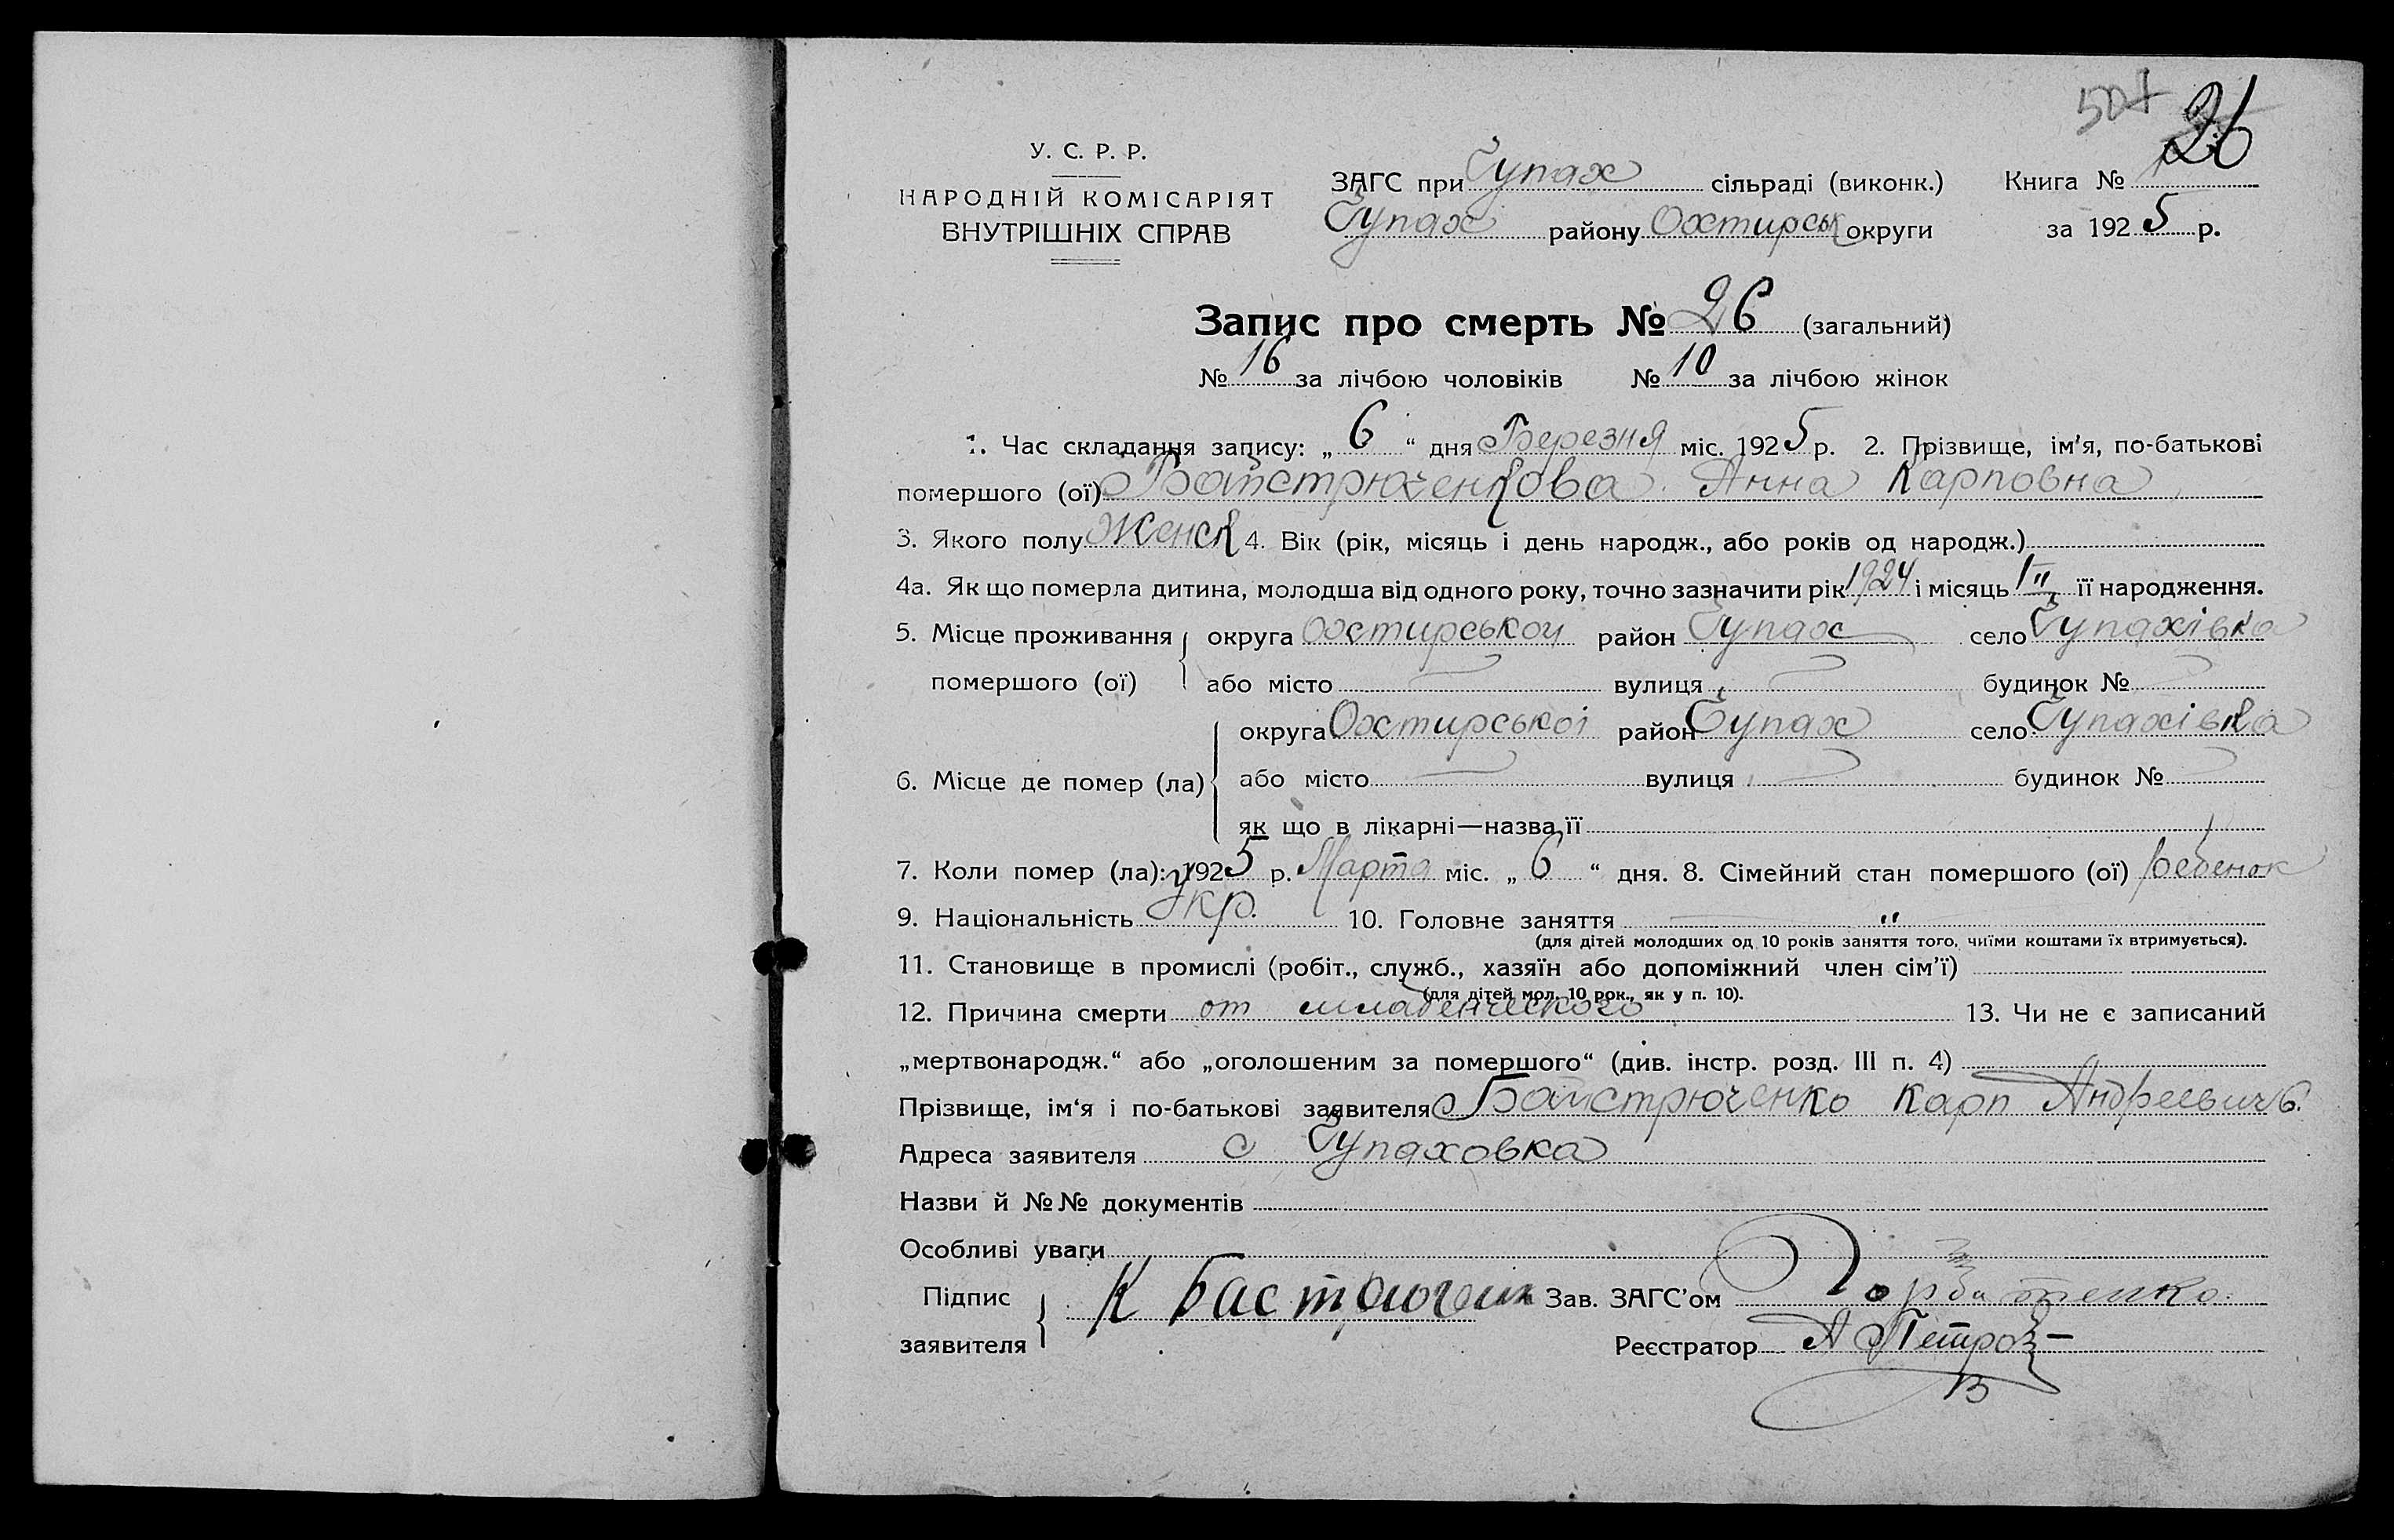 507 26
У. С. Р. Р.
НАРОДНІЙ КОМІСАРІЯТ
ВНУТРІШНІХ СПРАВ
ЗАГС при Чупах сільраді (виконк.) Книга №
Чупах району Охтирськ округи за 1925 р.
Запис про смерть № 26 (загальний)
№ 16 за лічбою чоловіків № 10 за лічбою жінок
1. Час складання запису: „ 6 “ дня Березня міс. 1925 р. 2. Прізвище, ім'я, по-батькові
помершого (ої) Байстрюченкова Анна Карповна
3. Якого полу Женск 4. Вік (рік, місяць і день народж., або років од народж.)
4а. Як що померла дитина, молодша від одного року, точно зазначити рік 1924 і місяць її народження.
5. Місце проживання округа Охтирськой район Чупах село Чупахівка
помершого (ої) або місто вулиця будинок №
округа Охтирськоі район Чупах село Чупахівка
6. Місце де помер (ла) або місто вулиця будинок №
як що в лікарні—назва її
7. Коли помер (ла): 1925 р. Марта міс. „ 6 “ дня. 8. Сімейний стан помершого (ої) ребенок
9. Національність Укр. 10. Головне заняття "
(для дітей молодших од 10 років заняття того, чиїми коштами їх втримується).
11. Становище в промислі (робіт., служб., хазяїн або допоміжний член сім'ї)
(для дітей мол. 10 рок., як у п. 10).
12. Причина смерти от младенческого 13. Чи не є записаний
„мертвонародж.“ або „оголошеним за помершого“ (див. інстр. розд. III п. 4)
Прізвище, ім'я і по-батькові заявителя Байстрюченко Карп Андреевичъ.
Адреса заявителя с Чупаховка
Назви й №№ документів
Особливі уваги
Підпис К Бастрюченк Зав. ЗАГС'ом Горбатенко.
заявителя Реєстратор А Петров